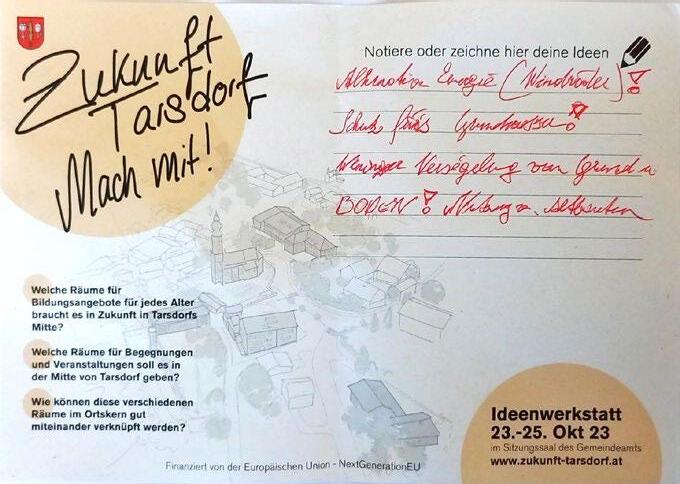 Zukunft
Tarsdorf
Mach mit!
Notiere oder zeichne hier deine Ideen
Alternative Energie (Windräder)!
Schutz fürs Grundwasser!
Weniger Versiegelung von Grund u
BODEN! Nutzung v. Altbauten
Welche Räume für
Bildungsangebote für jedes Alter
braucht es in Zukunft in Tarsdorfs
Mitte?
Welche Räume für Begegnungen
und Veranstaltungen soll es in
der Mitte von Tarsdorf geben?
Wie können diese verschiedenen
Räume im Ortskern gut
miteinander verknüpft werden?
Ideenwerkstatt
23.-25. Okt 23
im Sitzungssaal des Gemeindeamts
www.zukunft-tarsdorf.at
Finanziert von der Europäischen Union - NextGenerationEU